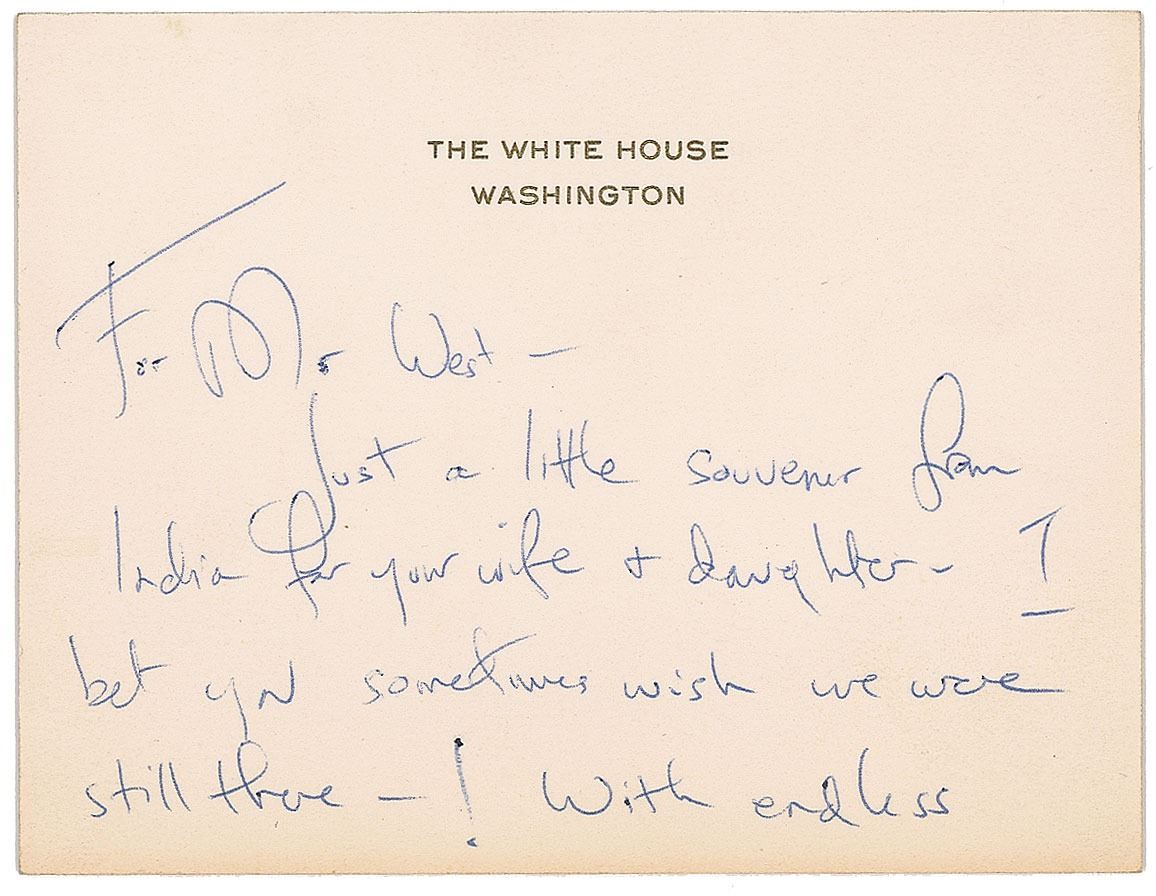 THE WHITE HOUSE
WASHINGTON
For Mr West —
Just a little souvenir from
India for your wife + daughter - I
bet you sometimes wish we were
still there — ! With endless